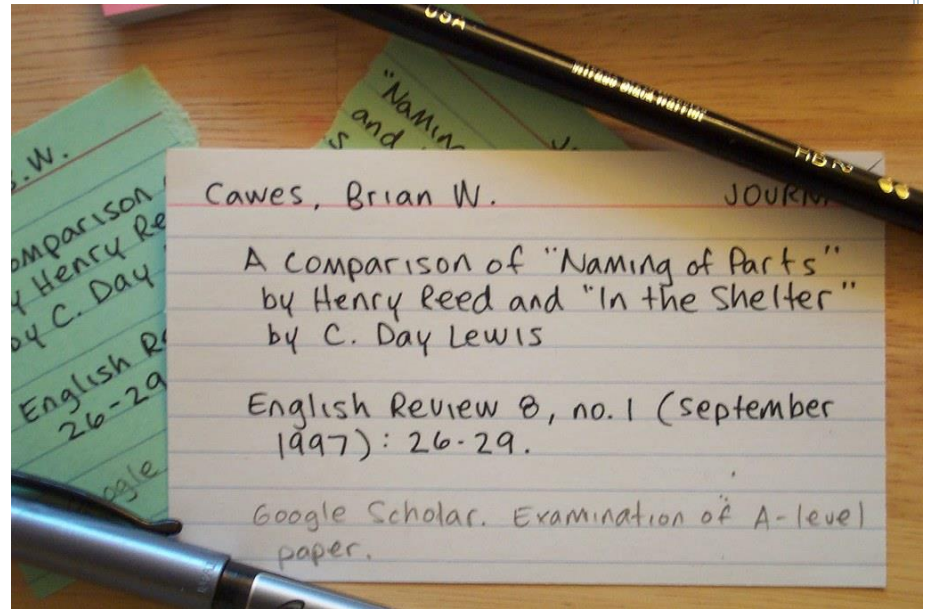 USA
HB
"Naming
and
.W.
omparison
Henry Re
by C. Day
English Re
26-29
ogle
Cawes, Brian W.
JOURN
A Comparison of "Naming of Parts"
by Henry Reed and "In the Shelter"
by C. Day Lewis
English Review 8, no. 1 (September
1997): 26-29.
Google Scholar. Examination of A-level
paper.